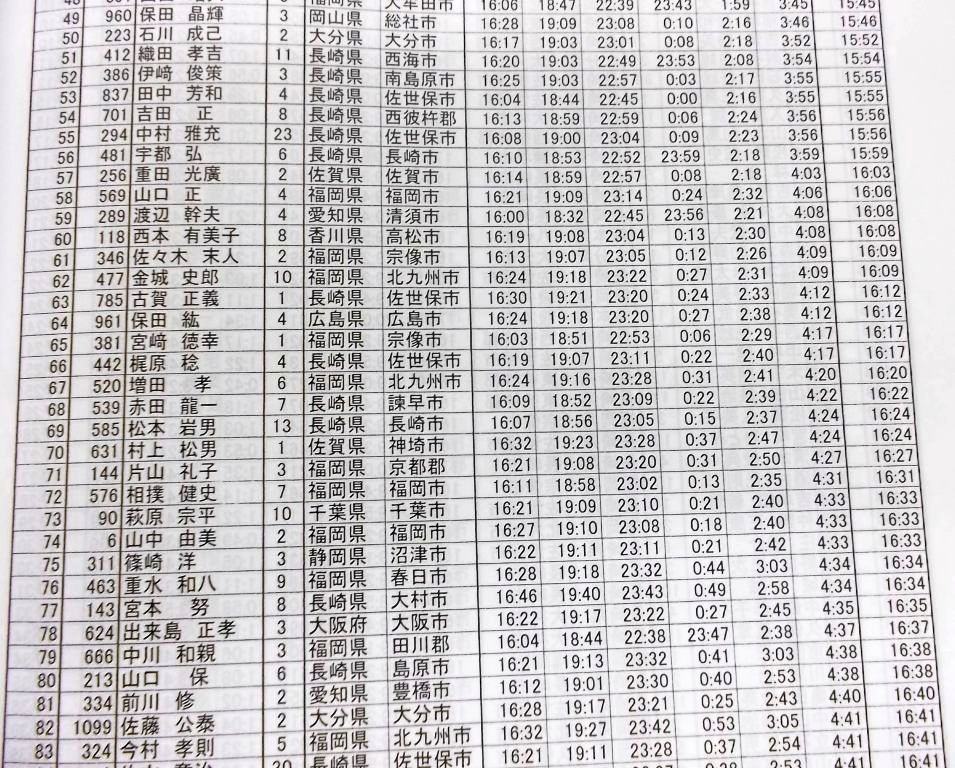 48 福岡県 大牟田市 16:06 18:47 22:39 23:43 1:59 3:45 15:45
49 960 保田 晶輝 3 岡山県 総社市 16:28 19:09 23:08 0:10 2:16 3:46 15:46
50 223 石川 成己 2 大分県 大分市 16:17 19:03 23:01 0:08 2:18 3:52 15:52
51 412 織田 孝吉 11 長崎県 西海市 16:20 19:03 22:49 23:53 2:08 3:54 15:54
52 386 伊﨑 俊策 3 長崎県 南島原市 16:25 19:03 22:57 0:03 2:17 3:55 15:55
53 837 田中 芳和 4 長崎県 佐世保市 16:04 18:44 22:45 0:00 2:16 3:55 15:55
54 701 吉田 正 8 長崎県 西彼杵郡 16:13 18:59 22:59 0:06 2:24 3:56 15:56
55 294 中村 雅充 23 長崎県 佐世保市 16:08 19:00 23:04 0:09 2:23 3:56 15:56
56 481 宇都 弘 6 長崎県 長崎市 16:10 18:53 22:52 23:59 2:18 3:59 15:59
57 256 重田 光廣 2 佐賀県 佐賀市 16:14 18:59 22:57 0:08 2:18 4:03 16:03
58 569 山口 正 4 福岡県 福岡市 16:21 19:09 23:14 0:24 2:32 4:06 16:06
59 289 渡辺 幹夫 4 愛知県 清須市 16:00 18:32 22:45 23:56 2:21 4:08 16:08
60 118 西本 有美子 8 香川県 高松市 16:19 19:08 23:04 0:13 2:30 4:08 16:08
61 346 佐々木 末人 2 福岡県 宗像市 16:13 19:07 23:05 0:12 2:26 4:09 16:09
62 477 金城 史郎 10 福岡県 北九州市 16:24 19:18 23:22 0:27 2:31 4:09 16:09
63 785 古賀 正義 1 長崎県 佐世保市 16:30 19:21 23:20 0:24 2:33 4:12 16:12
64 961 保田 紘 4 広島県 広島市 16:24 19:18 23:20 0:27 2:38 4:12 16:12
65 381 宮﨑 徳幸 1 福岡県 宗像市 16:03 18:51 22:53 0:06 2:29 4:17 16:17
66 442 梶原 稔 4 長崎県 佐世保市 16:19 19:07 23:11 0:22 2:40 4:17 16:17
67 520 増田 孝 6 福岡県 北九州市 16:24 19:16 23:28 0:31 2:41 4:20 16:20
68 539 赤田 龍一 7 長崎県 諫早市 16:09 18:52 23:09 0:22 2:39 4:22 16:22
69 585 松本 岩男 13 長崎県 長崎市 16:07 18:56 23:05 0:15 2:37 4:24 16:24
70 631 村上 松男 1 佐賀県 神埼市 16:32 19:23 23:28 0:37 2:47 4:24 16:24
71 144 片山 礼子 3 福岡県 京都郡 16:21 19:08 23:20 0:31 2:50 4:27 16:27
72 576 相撲 健史 7 福岡県 福岡市 16:11 18:58 23:02 0:13 2:35 4:31 16:31
73 90 萩原 宗平 10 千葉県 千葉市 16:21 19:09 23:10 0:21 2:40 4:33 16:33
74 6 山中 由美 2 福岡県 福岡市 16:27 19:10 23:08 0:18 2:40 4:33 16:33
75 311 篠崎 洋 3 静岡県 沼津市 16:22 19:11 23:11 0:21 2:42 4:33 16:33
76 463 重水 和八 9 福岡県 春日市 16:28 19:18 23:32 0:44 3:03 4:34 16:34
77 143 宮本 努 8 長崎県 大村市 16:46 19:40 23:43 0:49 2:58 4:34 16:34
78 624 出来島 正孝 3 大阪府 大阪市 16:22 19:17 23:22 0:27 2:45 4:35 16:35
79 666 中川 和親 3 福岡県 田川郡 16:04 18:44 22:38 23:47 2:38 4:37 16:37
80 213 山口 保 6 長崎県 島原市 16:21 19:13 23:32 0:41 3:03 4:38 16:38
81 334 前川 修 2 愛知県 豊橋市 16:12 19:01 23:30 0:40 2:53 4:38 16:38
82 1099 佐藤 公泰 2 大分県 大分市 16:28 19:17 23:21 0:25 2:43 4:40 16:40
83 324 今村 孝則 5 福岡県 北九州市 16:32 19:27 23:42 0:53 3:05 4:41 16:41
20 長崎県 佐世保市 16:21 19:11 23:28 0:37 2:54 4:41 16:41
2:53 4:41 16:41